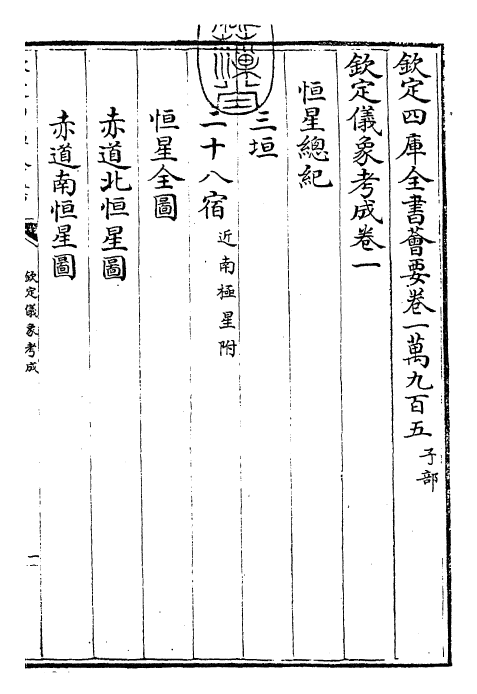 欽定四庫全書薈要卷一萬九百五 子部
欽定儀象考成卷一
恒星總紀
三垣
二十八宿 近南極星附
恒星全圖
赤道北恒星圖
赤道南恒星圖
欽定儀象考成
一